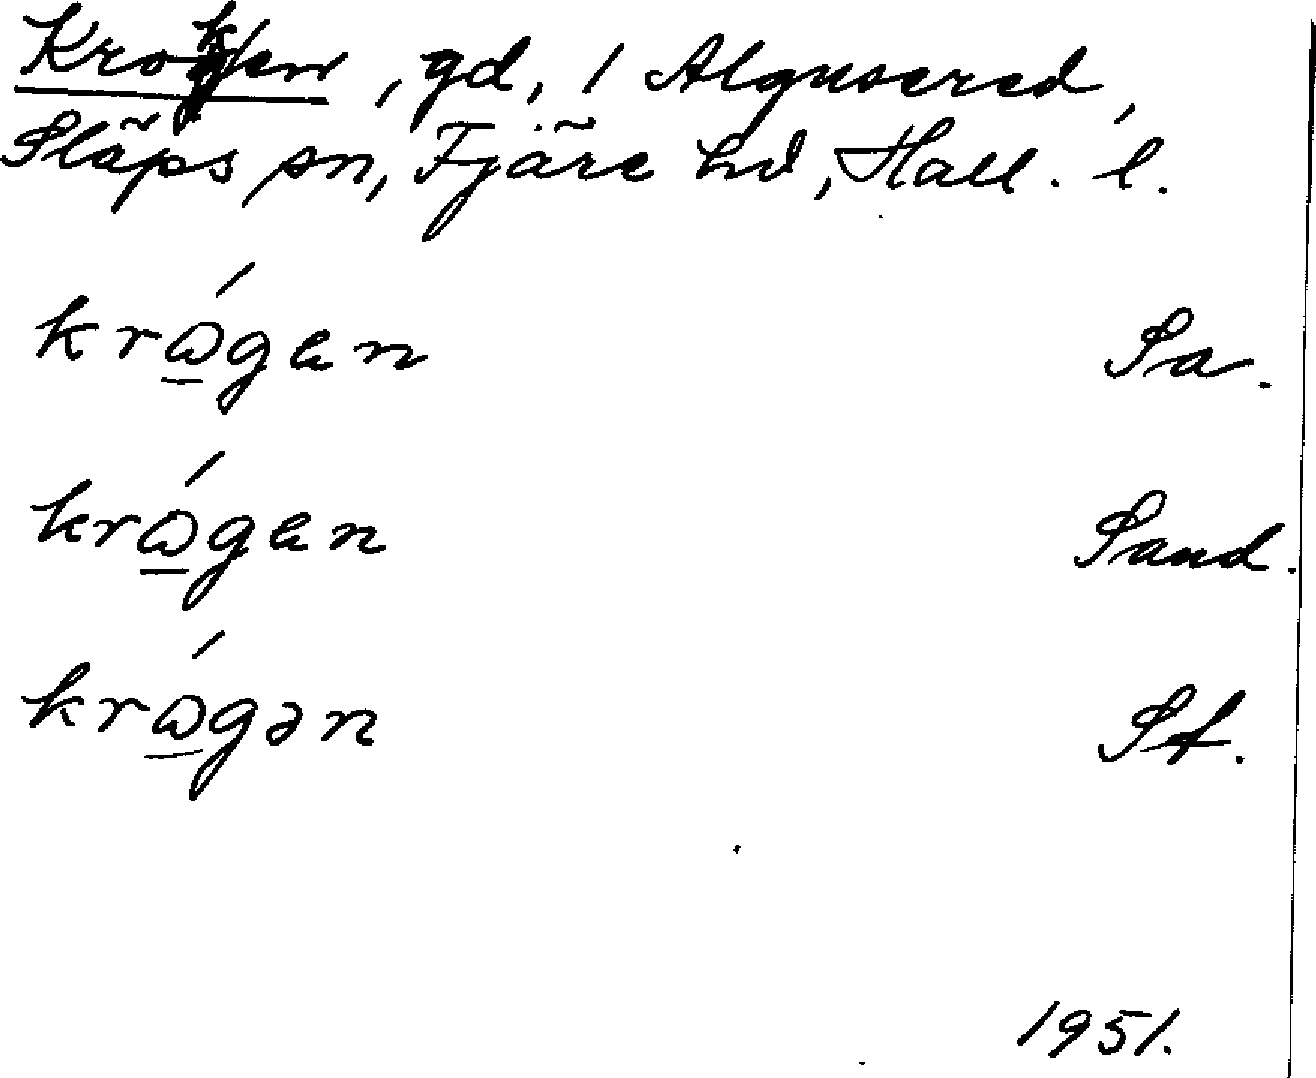 Kroken, gd, 1 Algusered,
Släps sn, Fjäre hd, Hall. l.
krώ̲gen Sa.
krώ̲gen Sand.
krώ̲gən Sf.
1951.